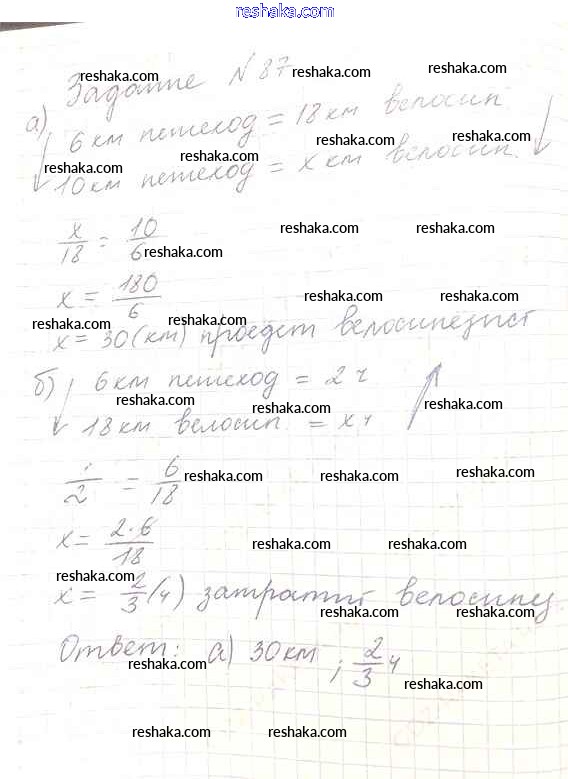 reshaka.com
Задание N 87
reshaka.com reshaka.com reshaka.com
а) 6 км пешеход = 18 км велосип
reshaka.com reshaka.com reshaka.com reshaka.com
10 км пешеход = x км велосип.
x/18 = 10/6
reshaka.com reshaka.com reshaka.com
x = 180/6
reshaka.com reshaka.com reshaka.com reshaka.com
x = 30 (км) проедет велосипедист
б) 6 км пешеход = 2 ч
reshaka.com reshaka.com reshaka.com
18 км велосип. = x ч
/2 = 6/18
reshaka.com reshaka.com reshaka.com
x = 2·6/18
reshaka.com reshaka.com
reshaka.com
x = 2/3 (ч) затратит велосипед
reshaka.com reshaka.com
Ответ: а) 30 км ; 2/3 ч
reshaka.com reshaka.com reshaka.com
reshaka.com reshaka.com